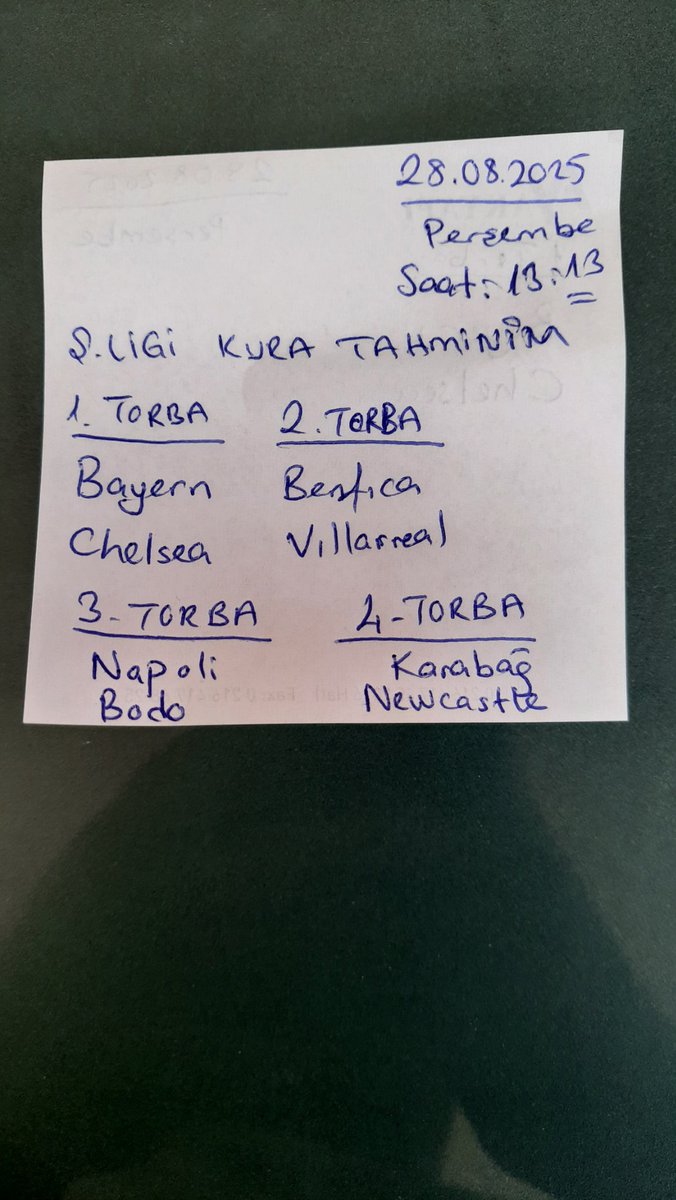 28.08.2025
Perşembe
Saat: 13:13
Ş.LiGi KURA TAHMiNİM
1. TORBA
Bayern
Chelsea
2. TORBA
Benfica
Villarreal
3- TORBA
Napoli
Bodo
4-TORBA
Karabağ
Newcastle